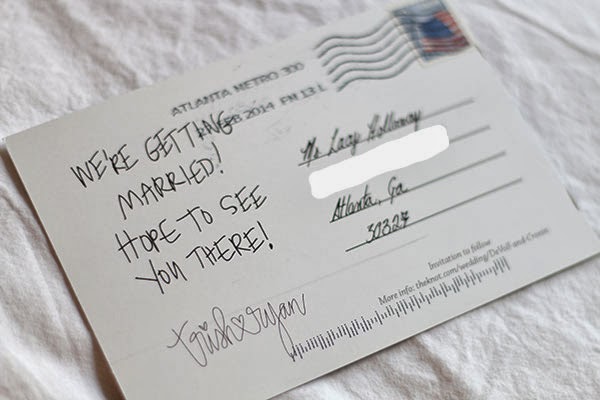 ATLANTA METRO 300
FEB 2014 PM 13 L
WE'RE GETTING
MARRIED!
HOPE TO SEE
YOU THERE!
trish ♡ ryan
Ms Lacy Holloway
Atlanta, Ga.
30327
Invitation to follow
More info: theknot.com/wedding/DeVoll-and-Cronin